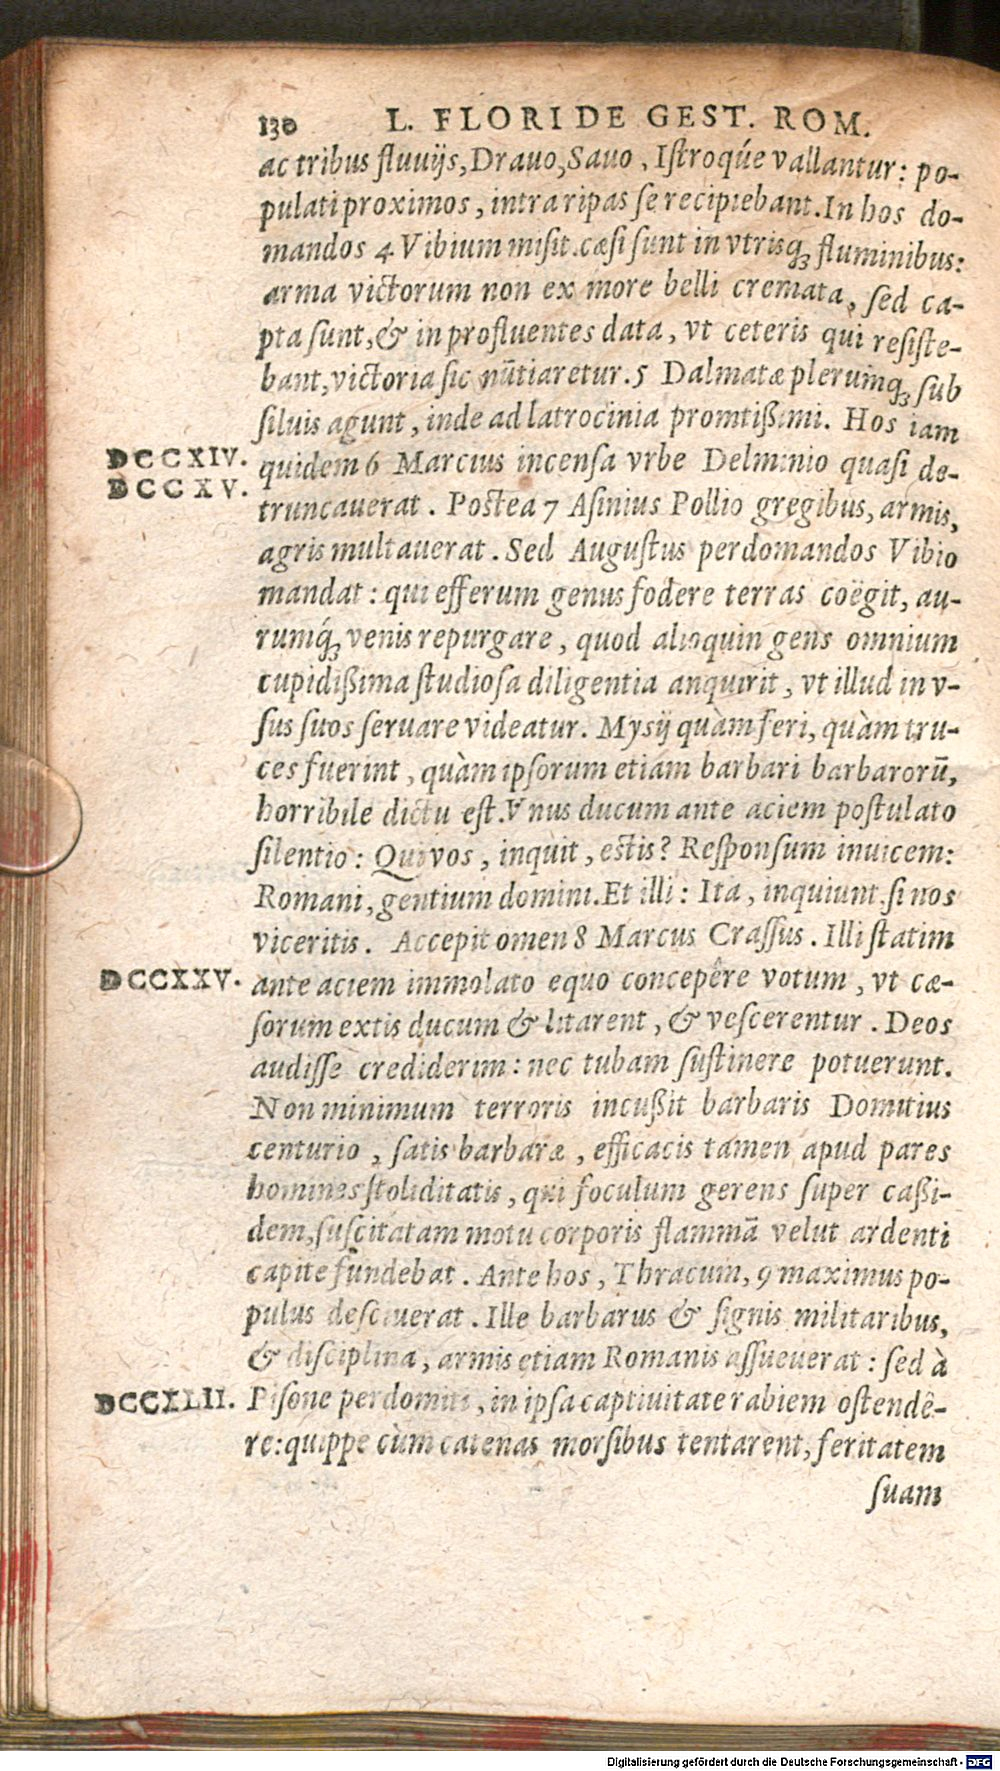 130 L. FLORI DE GEST. ROM.
ac tribus fluuijs, Drauo, Sauo, Istroq́ue vallantur: po-
pulati proximos, intra ripas se recipiebant. In hos do-
mandos 4 Vibium misit. cæsi sunt in vtrisq; fluminibus:
arma victorum non ex more belli cremata, sed ca-
pta sunt, & in profluentes data, vt ceteris qui resiste-
bant, victoria sic nūtiaretur. 5 Dalmatæ plerumq; sub
siluis agunt, inde ad latrocinia promtißimi. Hos iam
DCCXIV. quidem 6 Marcius incensa vrbe Delminio quasi de-
DCCXV. truncauerat. Postea 7 Asinius Pollio gregibus, armis,
agris multauerat. Sed Augustus perdomandos Vibio
mandat: qui efferum genus fodere terras coëgit, au-
rumq́; venis repurgare, quod alioquin gens omnium
cupidißima studiosa diligentia anquirit, vt illud in v-
sus suos seruare videatur. Mysij quàm feri, quàm tru-
ces fuerint, quàm ipsorum etiam barbari barbarorū,
horribile dictu est. Vnus ducum ante aciem postulato
silentio: Qui vos, inquit, estis? Responsum inuicem:
Romani, gentium domini. Et illi: Ita, inquiunt, si nos
viceritis. Accepit omen 8 Marcus Crassus. Illi statim
DCCXXV. ante aciem immolato equo concepêre votum, vt cæ-
sorum extis ducum & litarent, & vescerentur. Deos
audisse crediderim: nec tubam sustinere potuerunt.
Non minimum terroris incußit barbaris Domitius
centurio, satis barbaræ, efficacis tamen apud pares
homines stoliditatis, qui foculum gerens super caßi-
dem, suscitatam motu corporis flammā velut ardenti
capite fundebat. Ante hos, Thracum, 9 maximus po-
pulus desciuerat. Ille barbarus & signis militaribus,
& disciplina, armis etiam Romanis assueuerat: sed à
DCCXLII. Pisone perdomiti, in ipsa captiuitate rabiem ostendê-
re: quippe cùm catenas morsibus tentarent, feritatem
suam
Digitalisierung gefördert durch die Deutsche Forschungsgemeinschaft - DFG